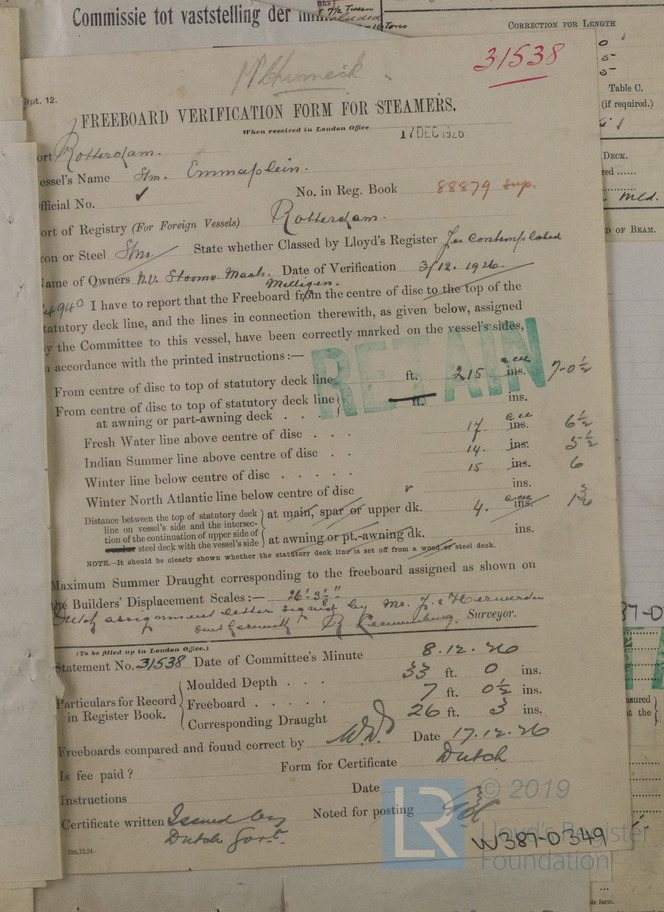 Commissie tot vaststelling der
CORRECTION FOR LENGTH
Table C.
(if required.)
DECK.
OF BEAM.
31538
Rpt. 12.
FREEBOARD VERIFICATION FORM FOR STEAMERS.
When received in London Office 17 DEC 1926
ort Rotterdam.
essel's Name Stm. Emmaplein.
fficial No. ✓ No. in Reg. Book 88879 sup.
ort of Registry (For Foreign Vessels) Rotterdam.
ron or Steel Stm State whether Classed by Lloyd's Register Yes Contemplated
ame of Owners N.V. Stoomv. Maats. Date of Verification 3/12.1926
Millingen.
4940 I have to report that the Freeboard from the centre of disc to the top of the
tatutory deck line, and the lines in connection therewith, as given below, assigned
y the Committee to this vessel, have been correctly marked on the vessel's sides,
accordance with the printed instructions:—
RETAIN
From centre of disc to top of statutory deck line ft. 215 ins. 7-0½
From centre of disc to top of statutory deck line ft. ins.
at awning or part-awning deck . . .
Fresh Water line above centre of disc . . . 17. ins. 6½
Indian Summer line above centre of disc . . 14. ins. 5½
Winter line below centre of disc . . . . . 15 ins. 6
Winter North Atlantic line below centre of disc ins.
Distance between the top of statutory deck line on vessel's side and the intersection of the continuation of upper side of steel deck with the vessel's side
at main, spar or upper dk. 4. ins.
at awning or pt.-awning dk. ins.
NOTE.—It should be clearly shown whether the statutory deck line is set off from a wood or steel deck.
Maximum Summer Draught corresponding to the freeboard assigned as shown on
the Builders' Displacement Scales:— 26'-3½"
Dutch assignment letter signed by Mr.
Surveyor.
(To be filled up in London Office.)
Statement No. 31538 Date of Committee's Minute 8.12.26
Particulars for Record in Register Book.
Moulded Depth . . . 33 ft. 0 ins.
Freeboard . . . . . 7 ft. 0½ ins.
Corresponding Draught 26 ft. 3 ins.
Freeboards compared and found correct by Date 17.12.26
Is fee paid ? Form for Certificate Dutch
Instructions Date
Certificate written Issued by Noted for posting
Dutch Govt.
2m,12.24.
LR © 2019
Lloyd's Register
Foundation
W387-0349